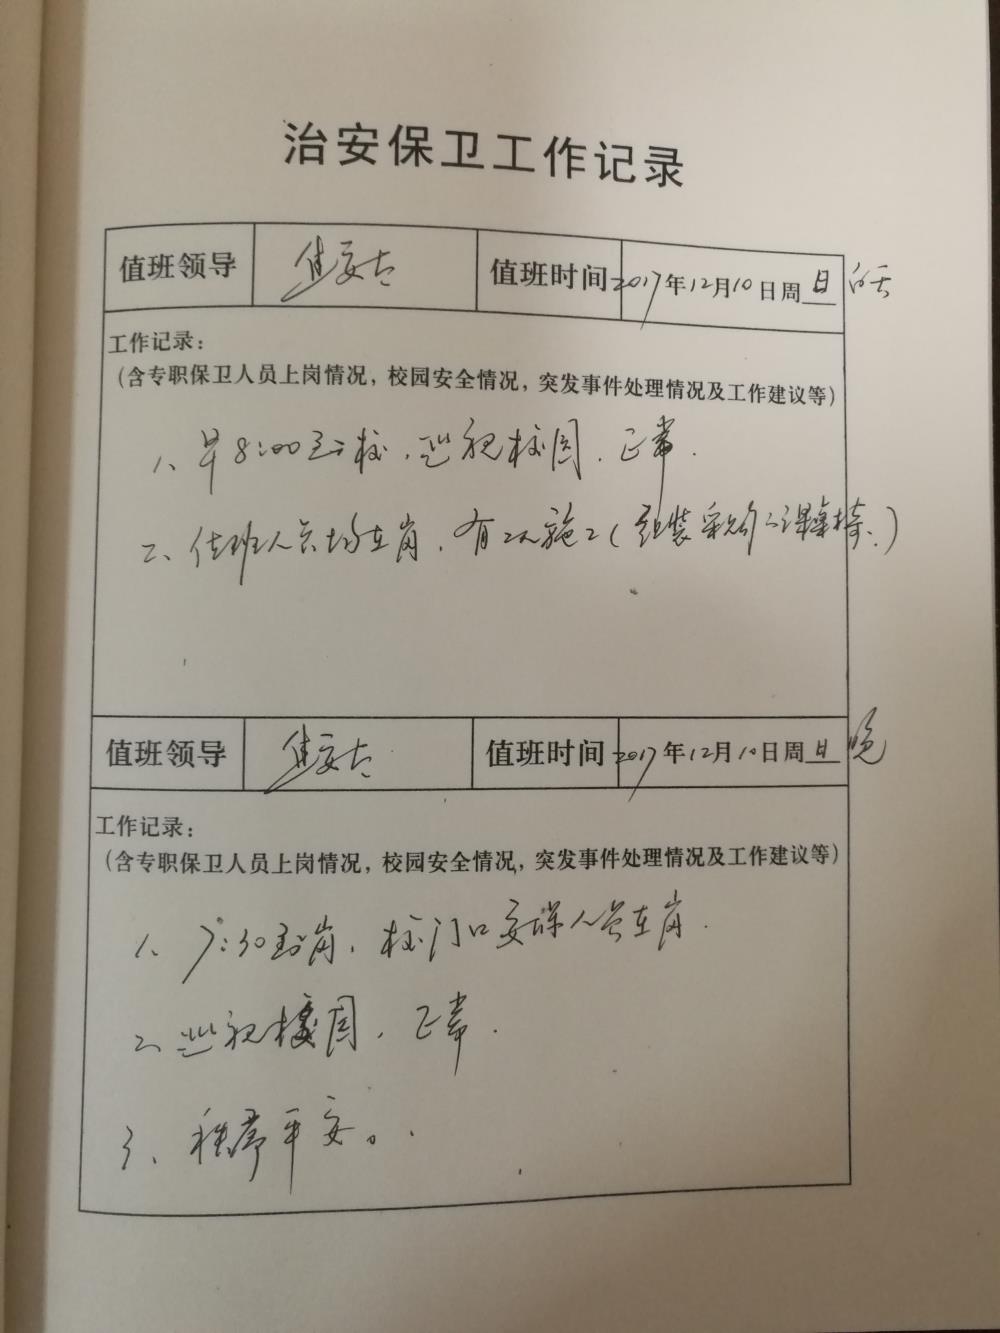 治安保卫工作记录
值班领导 焦安 值班时间 2017年12月10日周日 白天
工作记录：
（含专职保卫人员上岗情况，校园安全情况，突发事件处理情况及工作建议等）
1、早8:00到校，巡视校园，正常.
二、值班人员均在岗，有工人施工（组装采购的课桌椅.）
值班领导 焦安 值班时间 2017年12月10日周日 晚
工作记录：
（含专职保卫人员上岗情况，校园安全情况，突发事件处理情况及工作建议等）
1、7:30到岗，校门口安保人员在岗.
2、巡视校园，正常.
3、秩序平安。